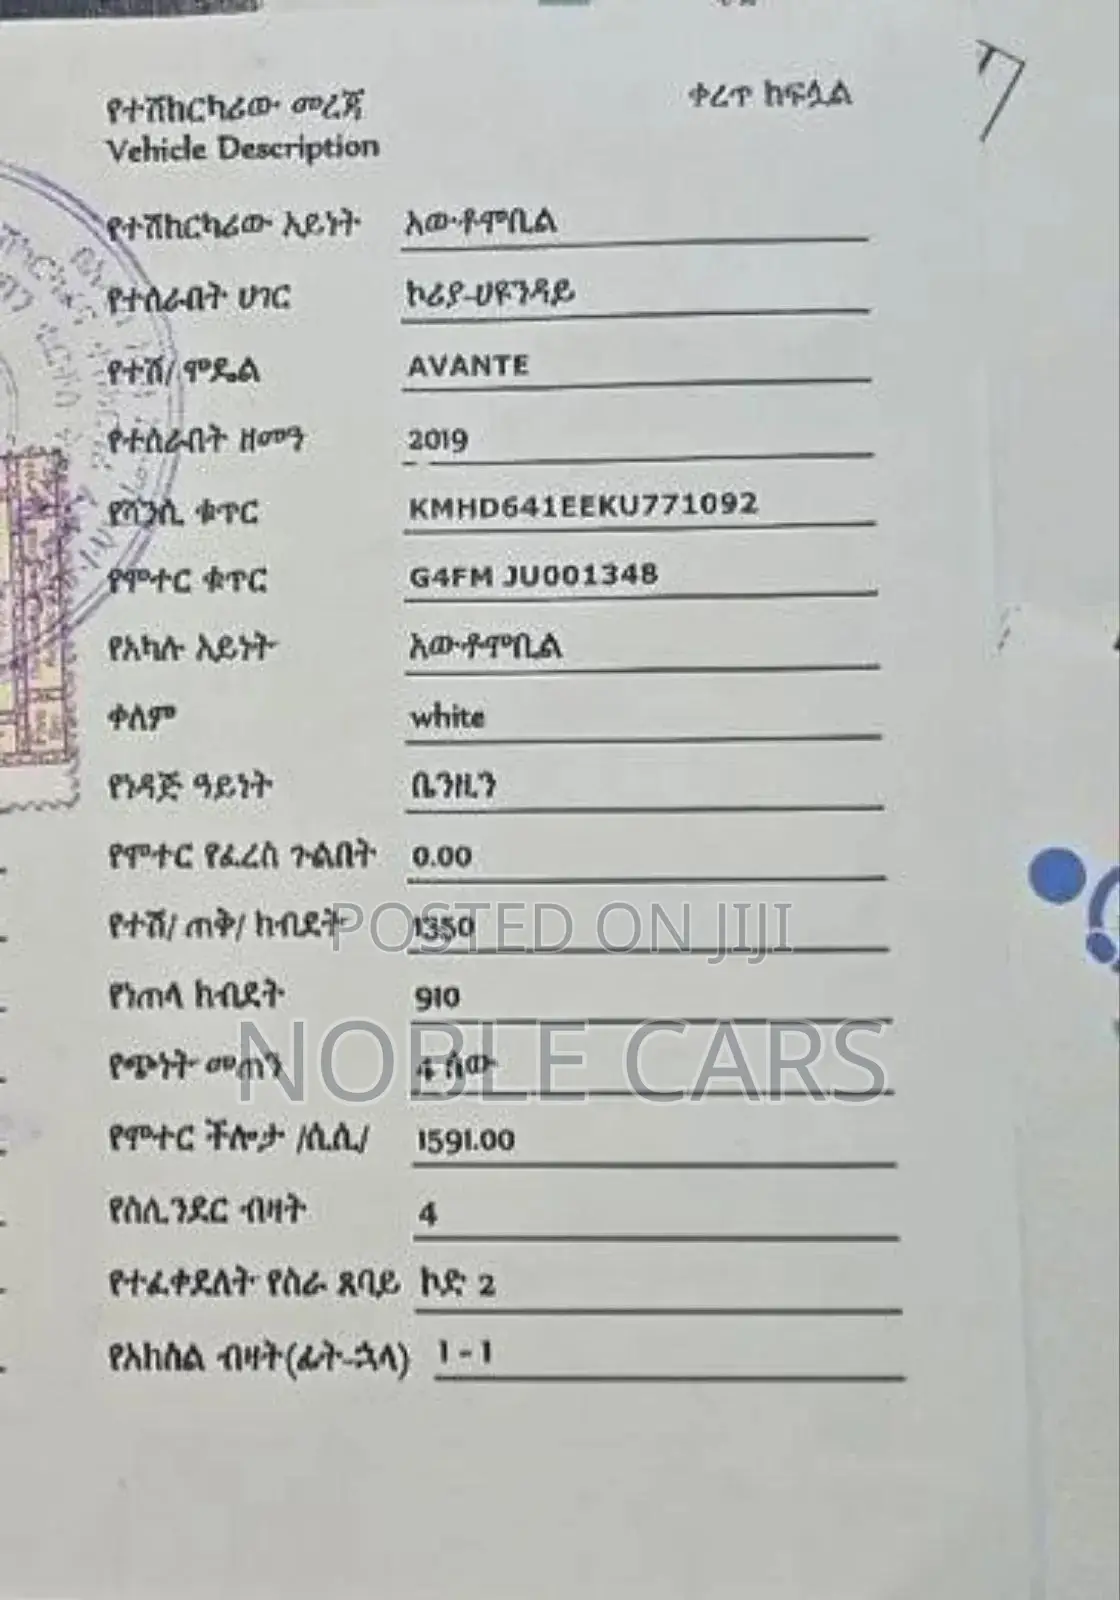 የተሽከርካሪው መረጃ ቀረጥ ከፍሏል
Vehicle Description
የተሽከርካሪው አይነት አውቶሞቢል
የተሰራበት ሀገር ኮሪያ-ሀዩንዳይ
የተሽ/ ሞዴል AVANTE
የተሰራበት ዘመን 2019
የሻንሲ ቁጥር KMHD641EEKU771092
የሞተር ቁጥር G4FM JU001348
የአካሉ አይነት አውቶሞቢል
ቀለም white
የነዳጅ ዓይነት ቤንዚን
የሞተር የፈረስ ጉልበት 0.00
የተሽ/ ጠቅ/ ክብደት 1350
POSTED ON JIJI
የነጠላ ክብደት 910
NOBLE CARS
የጭነት መጠን 4 ሰው
የሞተር ችሎታ /ሲሲ/ 1591.00
የሲሊንደር ብዛት 4
የተፈቀደለት የስራ ጸባይ ኮድ 2
የአክስል ብዛት(ፊት-ኋላ) 1 - 1